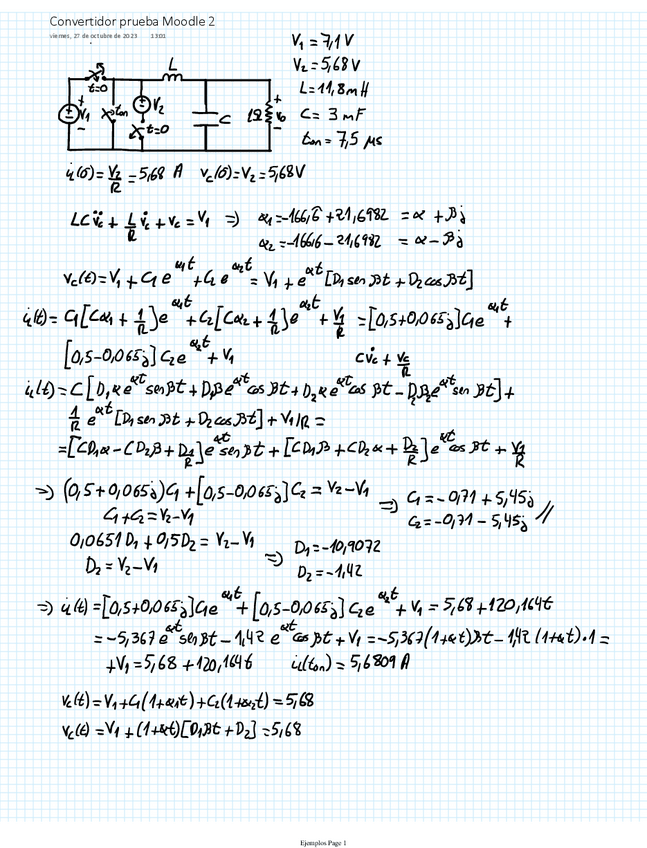 Convertidor prueba Moodle 2
viernes, 27 de octubre de 2023 13:01
V₁ = 7,1 V
V₂ = 5,68 V
L = 11,8 mH
C = 3 mF
ton = 7,5 μs
L
t=0
+ V₁ -
ton
V₂
t=0
C
1Ω
+ v₀ -
i_L(0) = V₂/R = 5,68 A v_c(0) = V₂ = 5,68 V
LC v̈c + L/R v̇c + vc = V₁ ⇒ α₁ = -166,6̂ + 21,6982 = α + βj
α₂ = -166,6 - 21,6982 = α - βj
v_c(t) = V₁ + C₁ e^α₁t + C₂ e^α₂t = V₁ + e^αt [D₁ sen βt + D₂ cos βt]
i_L(t) = C₁[Cα₁ + 1/R]e^α₁t + C₂[Cα₂ + 1/R]e^α₂t + V₁/R = [0,5+0,065j]C₁e^α₁t +
[0,5-0,065j] C₂e^α₂t + V₁ C v̇c + vc/R
i_L(t) = C[D₁αe^αt sen βt + D₁βe^αt cos βt + D₂αe^αt cos βt - D₂βe^αt sen βt] +
1/R e^αt [D₁ sen βt + D₂ cos βt] + V₁/R =
= [CD₁α - CD₂β + D₁/R]e^αt sen βt + [CD₁β + CD₂α + D₂/R]e^αt cos βt + V₁/R
⇒ (0,5+0,065j)C₁ + [0,5-0,065j]C₂ = V₂-V₁ ⇒ C₁ = -0,71 + 5,45j
C₁+C₂ = V₂-V₁ C₂ = -0,71 - 5,45j //
0,0651 D₁ + 0,5 D₂ = V₂-V₁ ⇒ D₁ = -10,9072
D₂ = V₂-V₁ D₂ = -1,42
⇒ i_L(t) = [0,5+0,065j]C₁e^α₁t + [0,5-0,065j] C₂e^α₂t + V₁ = 5,68 + 120,164t
= -5,367 e^αt sen βt - 1,42 e^αt cos βt + V₁ = -5,367(1+αt)βt - 1,42(1+αt)·1 =
+V₁ = 5,68 + 120,164t i_L(ton) = 5,6809 A
v_c(t) = V₁ + C₁(1+α₁t) + C₂(1+α₂t) = 5,68
v_c(t) = V₁ + (1+αt)[D₁βt + D₂] = 5,68
Ejemplos Page 1